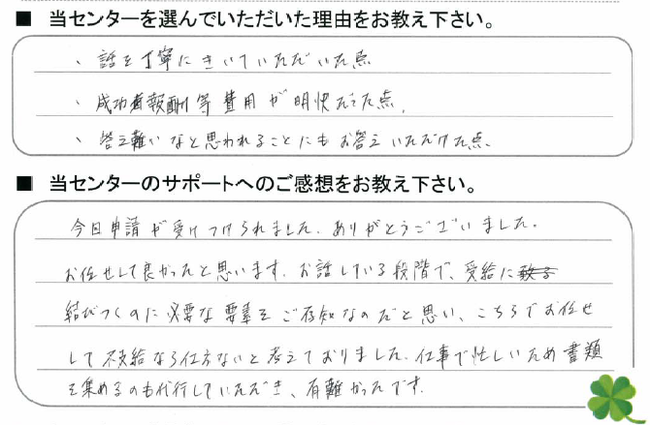 ■ 当センターを選んでいただいた理由をお教え下さい。
、話を丁寧にきいていただいた点
、成功者報酬等費用が明快だった点、
、答え難いなと思われることにもお答えいただけた点、
■ 当センターのサポートへのご感想をお教え下さい。
今日申請が受けつけられました、ありがとうございました。
お任せして良かったと思います。お話している段階で、受給に
結びつくのに必要な要素をご存知なのだと思い、こちらでお任せ
して不支給なら仕方ないと考えておりました。仕事で忙しいため書類
を集めるのも代行していただき、有難かったです。